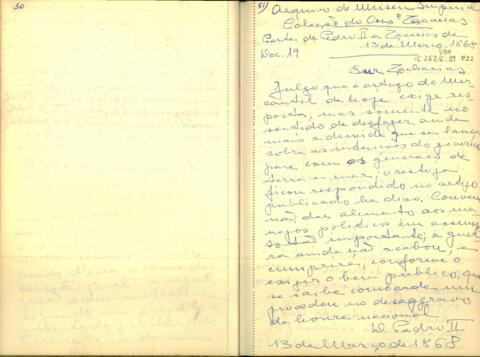 50
51/ Arquivo do Museu Imperial
Coleção do Consº Zacarias
Carta de Pedro II a Zacarias de
Doc. 19 13 de Março, 1868
Snr Zacharias
Julgo que o artigo do Mer-
cantil de hoje exige res-
posta, mas somente no
sentido de desfazer ainda
mais a duvida que se lança
sobre as intenções do governo
para com os generaes de
terra e mar; o resto já
ficou respondido no artigo
publicado ha dias. Convem
não dar alimento aos ma-
nejos politicos em assump-
so tão importante; a guer-
ra ainda não acabou, e
cumprirá, conforme o
exigir o bem publico, que
se saiba como cada um
procedeu no desaggravo
da honra nacional
D. Pedro II
13 de Março de 1868